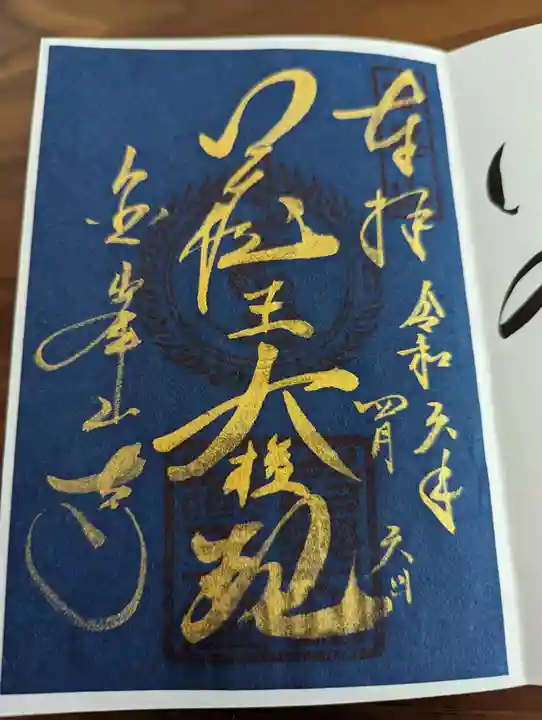 奉拝
令和六年
四月
六日
蔵王大権現
金峯山寺